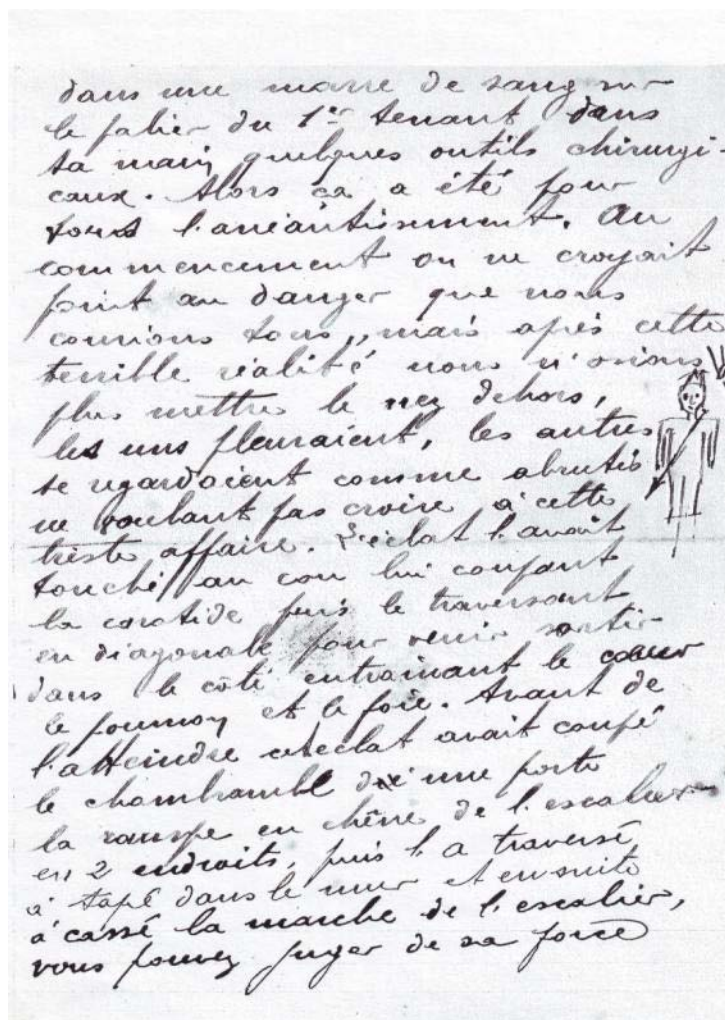 dans une marre de sang sur
le palier du 1er tenant dans
sa main quelques outils chirurgi-
caux. Alors ça a été pour
tous l'anéantissement. Au
commencement on ne croyait
point au danger que nous
courions tous, mais après cette
terrible réalité nous n'osions
plus mettre le nez dehors,
les uns pleuraient, les autres
se regardaient comme abrutis
ne voulant pas croire à cette
triste affaire. L'éclat l'avait
touché au cou lui coupant
la carotide puis le traversant
en diagonale pour venir sortir
dans le côté entrainant le coeur
le poumon et le foie. Avant de
l'atteindre cet eclat avait coupé
le chambranle d'une porte
la rampe en chêne de l'escalier
en 2 endroits, puis l'a traversé
à tapé dans le mur et ensuite
à cassé la marche de l'escalier,
vous pouvez juger de sa force